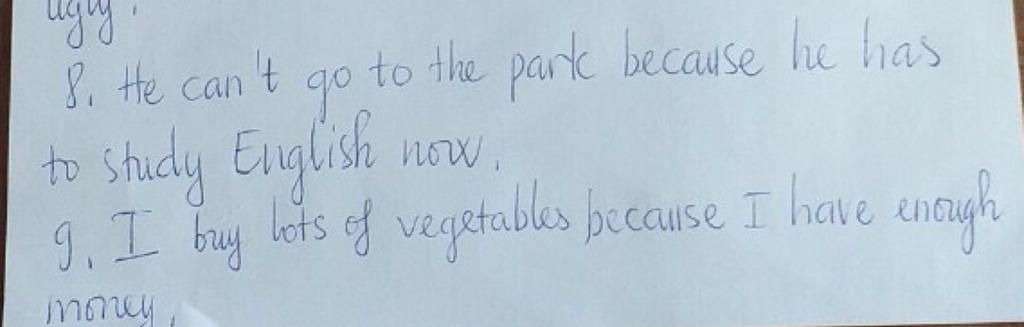 ugly.
8. He can't go to the park because he has
to study English now.
9. I buy lots of vegetables because I have enough
money.